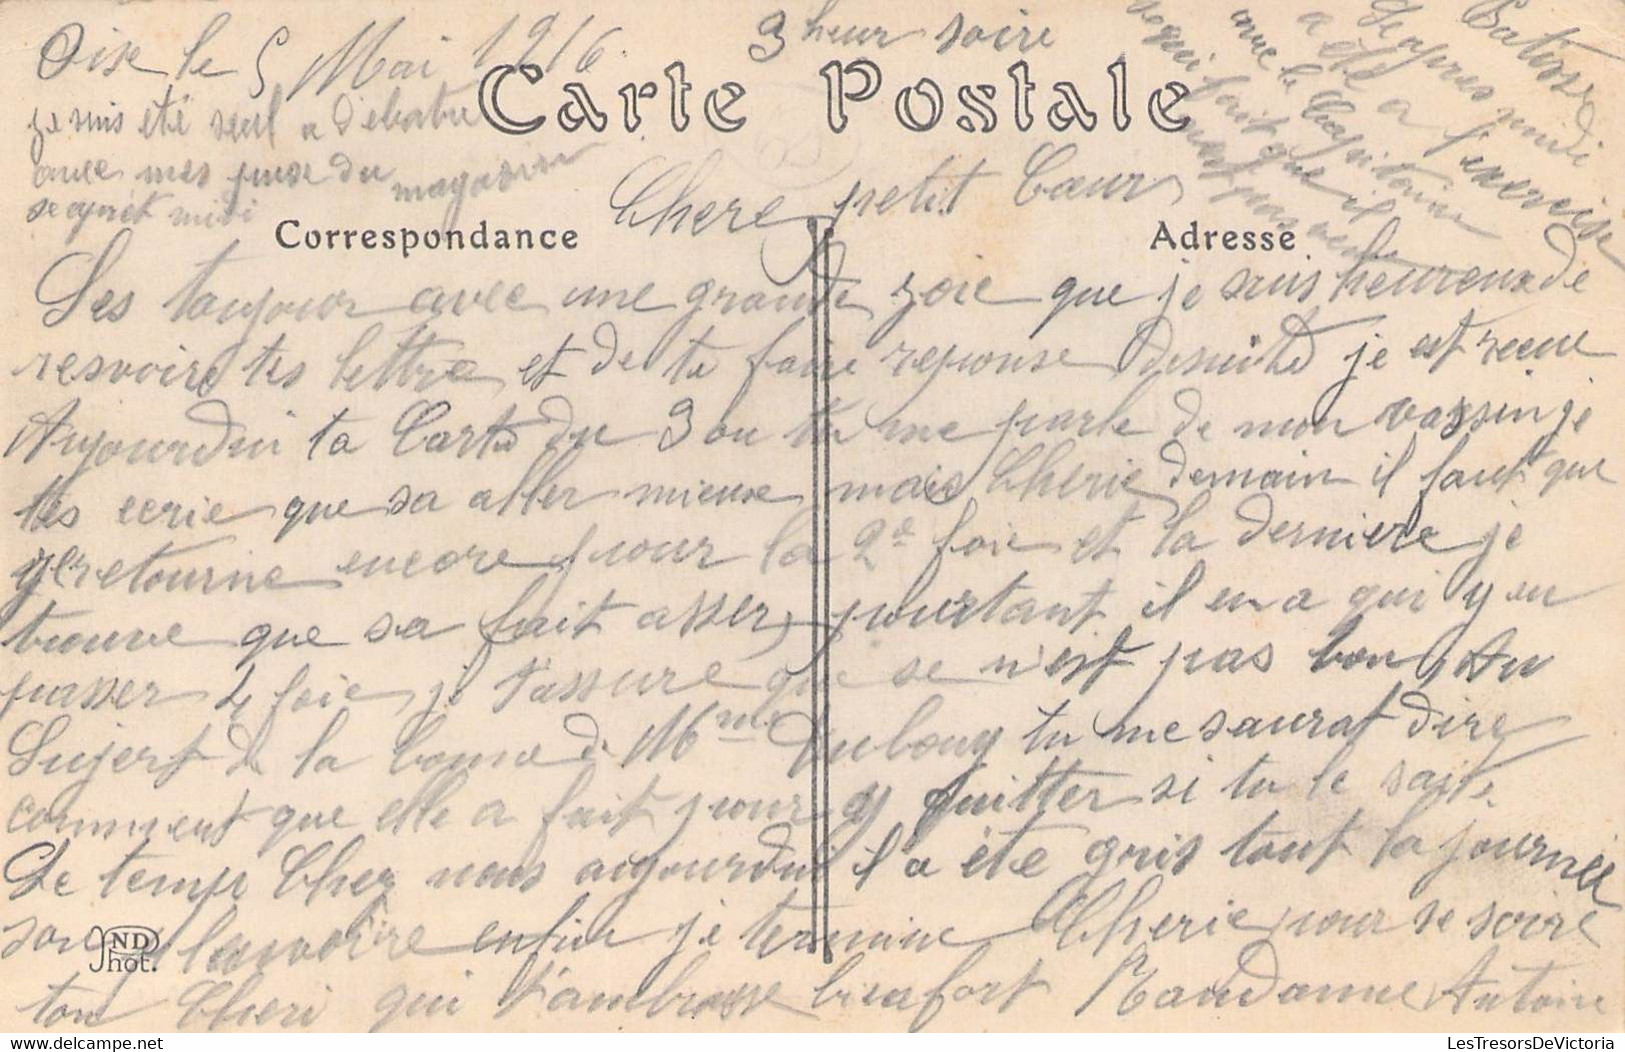 Oise le 5 Mai 1916 3 heur soire
je suis été seul a Débatre
avec mes puse du magasin
se apret midi
Patisse
se apres midi
a été a l'exercise
avec le Chapitaine
se qui fait que il
n'est pas
Carte Postale
Chere petit Cœur
Correspondance
Adresse
Ses toujour avec une grande joie que je suis heureux de
resvoire tes lettre et de te faire reponse desuite je est recue
Aujourdui ta Carte du 3 ou tu me parle de mon vassin je
tes ecrie que sa aller mieux mais Cherie demain il faut que
y retourne encore pour la 2e foie et la derniere je
trouve que sa fait asser, pourtant il en a qui y en
passer 4 foie, je t'assure que se n'est pas bon, Au
Sujert de la bonne de Mme Dubouy tu me saurat dire
comment que elle a fait pour y quitter si tu le sait.
Le temp Chez nous aujourdui il a été gris tout la journée
sans pleuvoire enfin je termine Cherie pour se soire
ton Cheri qui t'ambrasse bien fort Randanne Antoine
ND
Phot.
LesTresorsDeVictoria
© www.delcampe.net